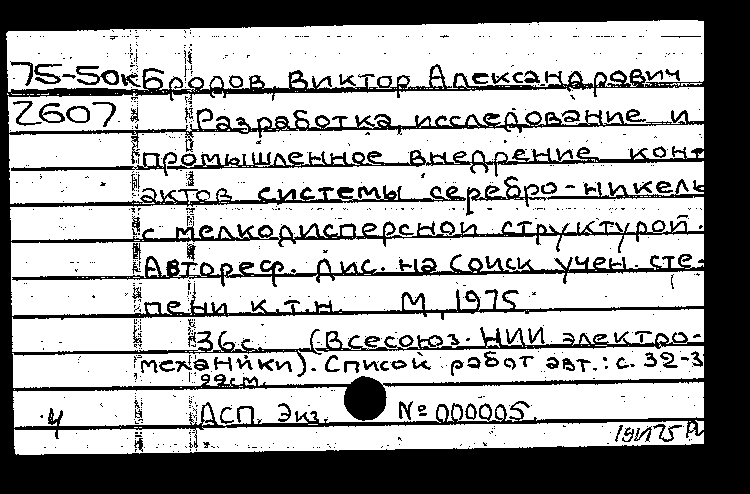 75-50к Бродов, Виктор Александрович
2607 Разработка, исследование и
промышленное внедрение конт
актов системы серебро-никель
с мелкодисперсной структурой.
Автореф. дис. на соиск учен. сте-
пени к.т.н. М, 1975
36с. (Всесоюз. НИИ электро-
механики). Список работ авт.: с. 32-3
22см.
Ч АСП. Экз. № 000005.